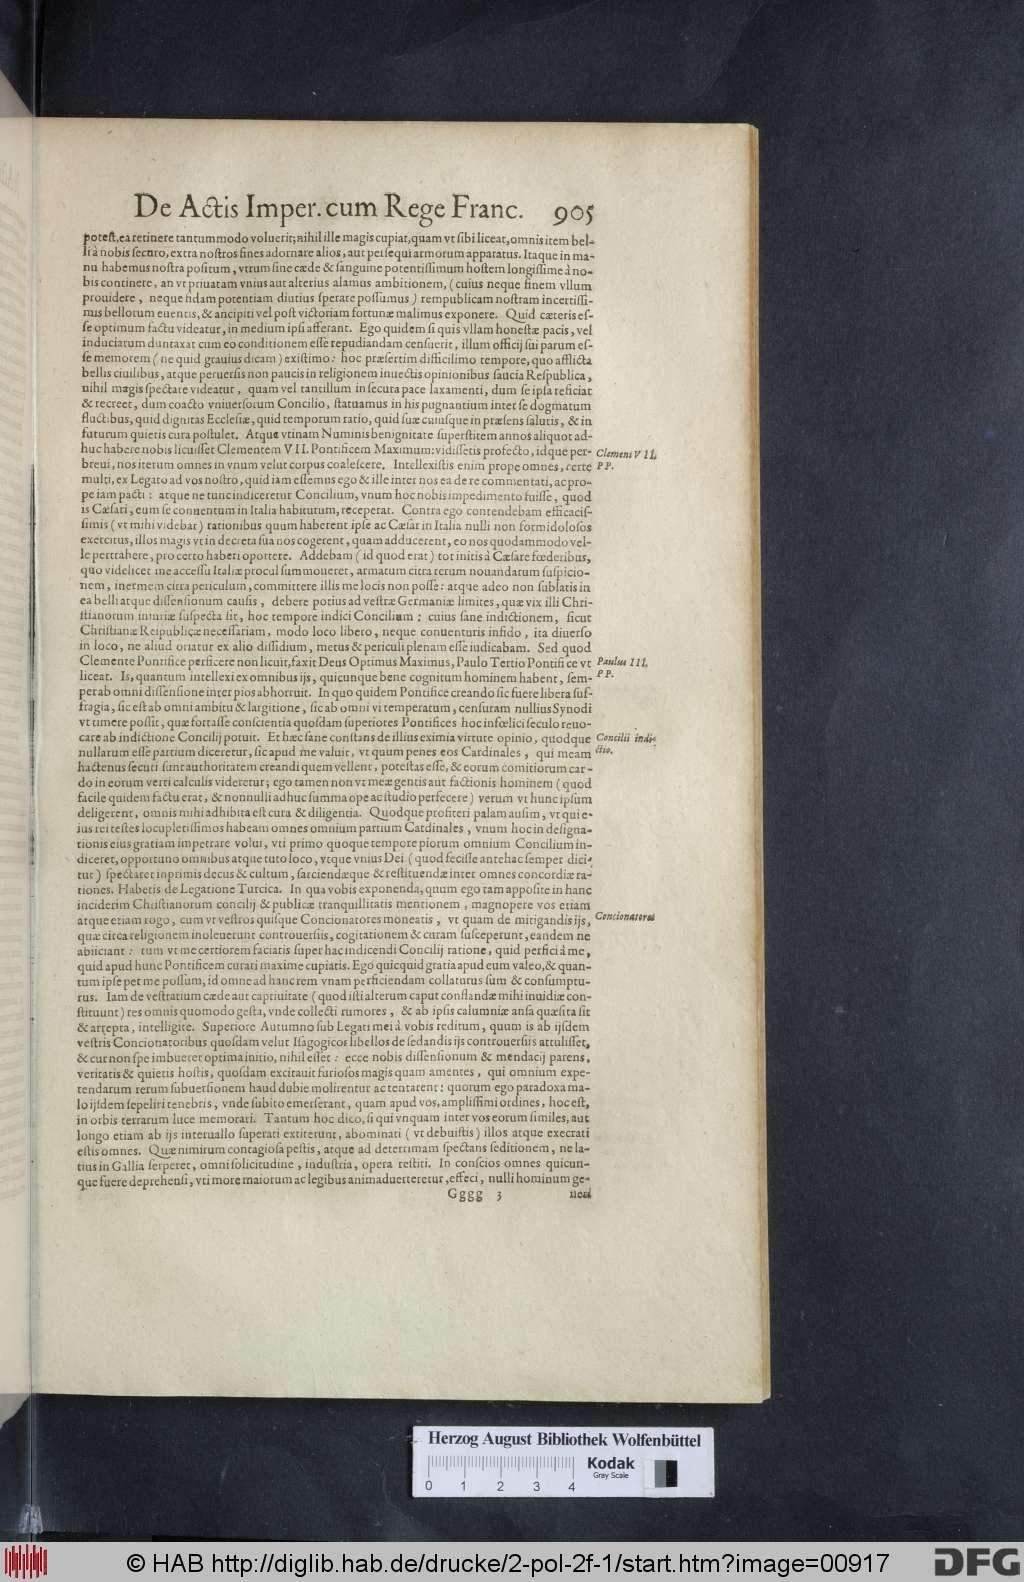 De Actis Imper. cum Rege Franc. 905
potest, ea retinere tantummodo voluerit; nihil ille magis cupiat, quam vt sibi liceat, omnis item bel-
li à nobis securo, extra nostros fines adornare alios, aut persequi armorum apparatus. Itaque in ma-
nu habemus nostra positum, vtrum sine cæde & sanguine potentissimum hostem longissime à no-
bis continere, an vt priuatam vnius aut alterius alamus ambitionem, (cuius neque finem vllum
prouidere, neque fidam potentiam diutius sperare possumus) rempublicam nostram incertissi-
mis bellorum euentis, & ancipiti vel post victoriam fortunæ malimus exponere. Quid cæteris es-
se optimum factu videatur, in medium ipsi afferant. Ego quidem si quis vllam honestæ pacis, vel
induciarum duntaxat cum eo conditionem esse repudiandam censuerit, illum officij sui parum es-
se memorem (ne quid grauius dicam) existimo: hoc præsertim difficilimo tempore, quo afflicta
bellis ciuilibus, atque peruersis non paucis in religionem inuectis opinionibus saucia Respublica,
nihil magis spectare videatur, quam vel tantillum in secura pace laxamenti, dum se ipsa reficiat
& recreet, dum coacto vniuersorum Concilio, statuamus in his pugnantium inter se dogmatum
fluctibus, quid dignitas Ecclesiæ, quid temporum ratio, quid suæ cuiusque in præsens salutis, & in
futurum quietis cura postulet. Atque vtinam Numinis benignitate superstitem annos aliquot ad-
huc habere nobis licuisset Clementem VII. Pontificem Maximum: vidissetis profecto, idque per-
Clemens VII.
breui, nos iterum omnes in vnum velut corpus coalescere. Intellexistis enim prope omnes, certe
PP.
multi, ex Legato ad vos nostro, quid iam essemus ego & ille inter nos ea de re commentati, ac pro-
pe iam pacti: atque ne tunc indiceretur Concilium, vnum hoc nobis impedimento fuisse, quod
is Cæsari, eum se conuentum in Italia habiturum, receperat. Contra ego contendebam efficacis-
simis (vt mihi videbar) rationibus quum haberent ipse ac Cæsar in Italia nulli non formidolosos
exercitus, illos magis vt in decreta sua nos cogerent, quam adducerent, eo nos quodammodo vel-
le pertrahere, pro certo haberi oportere. Addebam (id quod erat) tot initis à Cæsare fœderibus,
quo videlicet me accessu Italiæ procul summoueret, armatum citra rerum nouandarum suspicio-
nem, inermem citra periculum, committere illis me locis non posse: atque adeo non sublatis in
ea belli atque dissensionum causis, debere potius ad vestræ Germaniæ limites, quæ vix illi Chri-
stianorum iniuriæ suspecta sit, hoc tempore indici Concilium: cuius sane indictionem, sicut
Christianæ Reipublicæ necessariam, modo loco libero, neque conuenturis infido, ita diuerso
in loco, ne aliud oriatur ex alio dissidium, metus & periculi plenam esse iudicabam. Sed quod
Clemente Pontifice perficere non licuit, faxit Deus Optimus Maximus, Paulo Tertio Pontifice vt
Paulus III.
liceat. Is, quantum intellexi ex omnibus ijs, quicunque bene cognitum hominem habent, sem-
PP.
per ab omni dissensione inter pios abhorruit. In quo quidem Pontifice creando sic fuere libera suf-
fragia, sic est ab omni ambitu & largitione, sic ab omni vi temperatum, censuram nullius Synodi
vt timere possit, quæ fortasse conscientia quosdam superiores Pontifices hoc infœlici seculo reuo-
care ab indictione Concilij potuit. Et hæc sane constans de illius eximia virtute opinio, quodque
Concilii indi-
nullarum esse partium diceretur, sic apud me valuit, vt quum penes eos Cardinales, qui meam
ctio.
hactenus secuti sunt authoritatem creandi quem vellent, potestas esse, & eorum comitiorum car-
do in eorum verti calculis videretur; ego tamen non vt meæ gentis aut factionis hominem (quod
facile quidem factu erat, & nonnulli adhuc summa ope ac studio persecere) verum vt hunc ipsum
deligerent, omnis mihi adhibita est cura & diligentia. Quodque profiteri palam ausim, vt qui e-
ius rei testes locupletissimos habeam omnes omnium partium Cardinales, vnum hoc in designa-
tionis eius gratiam impetrare volui, vti primo quoque tempore piorum omnium Concilium in-
diceret, opportuno omnibus atque tuto loco, vtque vnius Dei (quod fecisse antehac semper dici-
tur) spectaret inprimis decus & cultum, sarciendæque & restituendæ inter omnes concordiæ ra-
tiones. Habetis de Legatione Turcica. In qua vobis exponenda, quum ego tam apposite in hanc
inciderim Christianorum concilij & publicæ tranquillitatis mentionem, magnopere vos etiam
atque etiam rogo, cum vt vestros quisque Concionatores moneatis, vt quam de mitigandis ijs,
Concionatores
quæ circa religionem inoleuerunt controuersiis, cogitationem & curam susceperunt, eandem ne
abiiciant: tum vt me certiorem faciatis super hac indicendi Concilij ratione, quid perfici à me,
quid apud hunc Pontificem curari maxime cupiatis. Ego quicquid gratia apud eum valeo, & quan-
tum ipse per me possum, id omne ad hanc rem vnam perficiendam collaturus sum & consumptu-
rus. Iam de vestratium cæde aut captiuitate (quod isti alterum caput conflandæ mihi inuidiæ con-
stituunt) res omnis quomodo gesta, vnde collecti rumores, & ab ipsis calumniæ ansa quæsita sit
& arrepta, intelligite. Superiore Autumno sub Legati mei à vobis reditum, quum is ab ijsdem
vestris Concionatoribus quosdam velut Isagogicos libellos de sedandis ijs controuersiis attulisset,
& cur non spe imbueret optima initio, nihil esset: ecce nobis dissensionum & mendacij parens,
veritatis & quietis hostis, quosdam excitauit furiosos magis quam amentes, qui omnium expe-
tendarum rerum subuersionem haud dubie molirentur ac tentarent: quorum ego paradoxa ma-
lo ijsdem sepeliri tenebris, vnde subito emerserant, quam apud vos, amplissimi ordines, hoc est,
in orbis terrarum luce memorari. Tantum hoc dico, si qui vnquam inter vos eorum similes, aut
longo etiam ab ijs interuallo superati extiterunt, abominati (vt debuistis) illos atque execrati
estis omnes. Quæ nimirum contagiosa pestis, atque ad deterrimam spectans seditionem, ne la-
tius in Gallia serperet, omni solicitudine, industria, opera restiti. In conscios omnes quicun-
que fuere deprehensi, vti more maiorum ac legibus animaduerteretur, effeci, nulli hominum ge-
Gggg 3
Herzog August Bibliothek Wolfenbüttel
Kodak
Gray Scale
0 1 2 3 4
© HAB http://diglib.hab.de/drucke/2-pol-2f-1/start.htm?image=00917
DFG